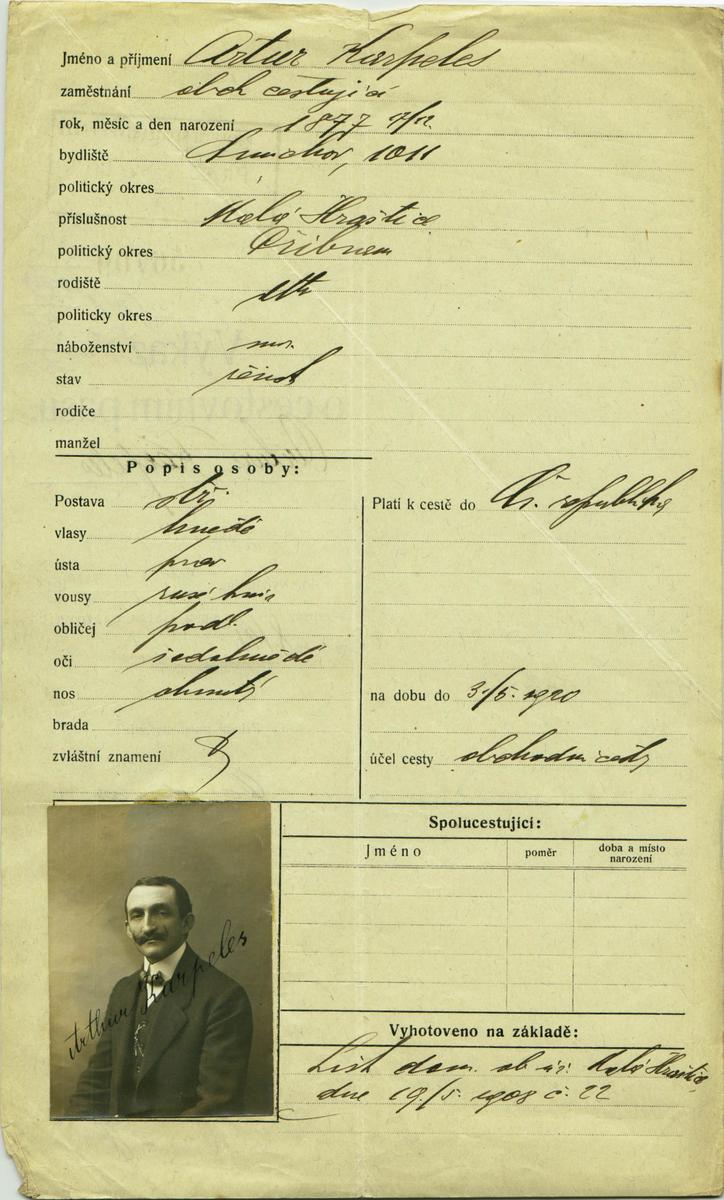 Jméno a příjmení Artur Karpeles
zaměstnání obch cestující
rok, měsíc a den narození 1877 7/12
bydliště Smíchov, 1011
politický okres
příslušnost Malá Hraštice
politický okres Příbram
rodiště
politicky okres
náboženství
stav ženat
rodiče
manžel
Popis osoby:
Postava stř.
vlasy hnědé
ústa prav
vousy rusé
obličej podl.
oči šedohnědé
nos ohnutý
brada
zvláštní znamení
Platí k cestě do Čs. republiky
na dobu do 3/5. 1920
účel cesty obchodní cesty
Spolucestující:
Jméno
poměr
doba a místo
narození
Vyhotoveno na základě:
List dom. ob. úř. Malá Hraštice
dne 19/5. 1908 č. 22
Arthur Karpeles